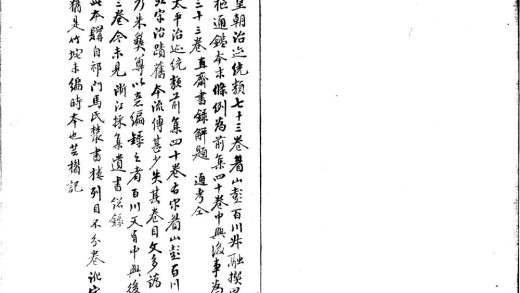 皇朝治迹統類七十三卷眉山彭百川叔融撰略
?通鑑本末條例為前集四十卷中興後事為
三十三卷直齋書錄解題 通考仝
太平治迹統類前集四十卷右宋眉山彭百川
字治蹟舊本流傳甚少失其卷目文多譌
乃朱奠尊以意編錄之者百川又有中興後
三卷今未見浙江採集遺書總錄
此本購自祁門馬氏叢書樓列目不分卷訛字
猶是竹垞未編時本也芸楣記